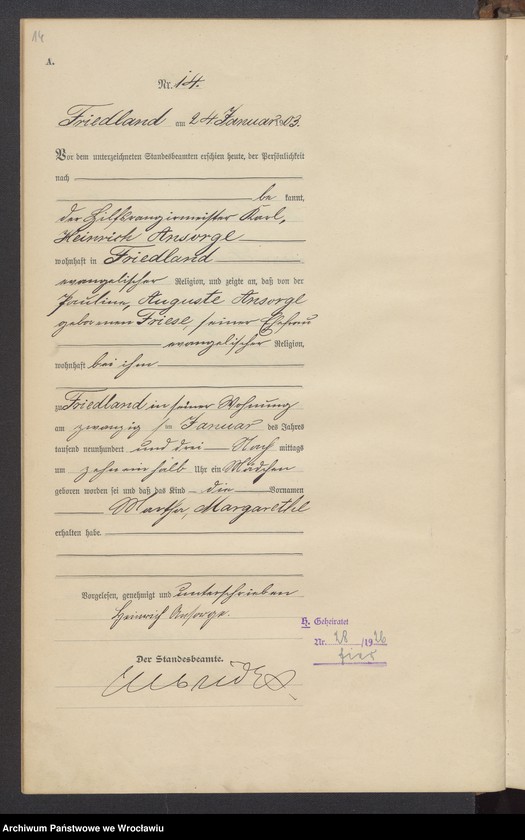 14
A.
Nr. 14.
Friedland am 24 Januar 1903.
Vor dem unterzeichneten Standesbeamten erschien heute, der Persönlichkeit
nach
be kannt,
der Hilfsrangirmeister Karl,
Heinrich Ansorge
wohnhaft in Friedland
evangelischer Religion, und zeigte an, daß von der
Pauline, Auguste Ansorge
geborenen Friese, seiner Ehefrau
evangelischer Religion,
wohnhaft bei ihm
zu Friedland in seiner Wohnung
am zwanzig sten Januar des Jahres
tausend neunhundert und drei Nach mittags
um zehneinhalb Uhr ein Mädchen
geboren worden sei und daß das Kind die Vornamen
Martha, Margarethe
erhalten habe.
Vorgelesen, genehmigt und unterschrieben
Heinrich Ansorge.
H. Geheiratet
Nr. 28 /1926
hier
Der Standesbeamte.
Archiwum Państwowe we Wrocławiu